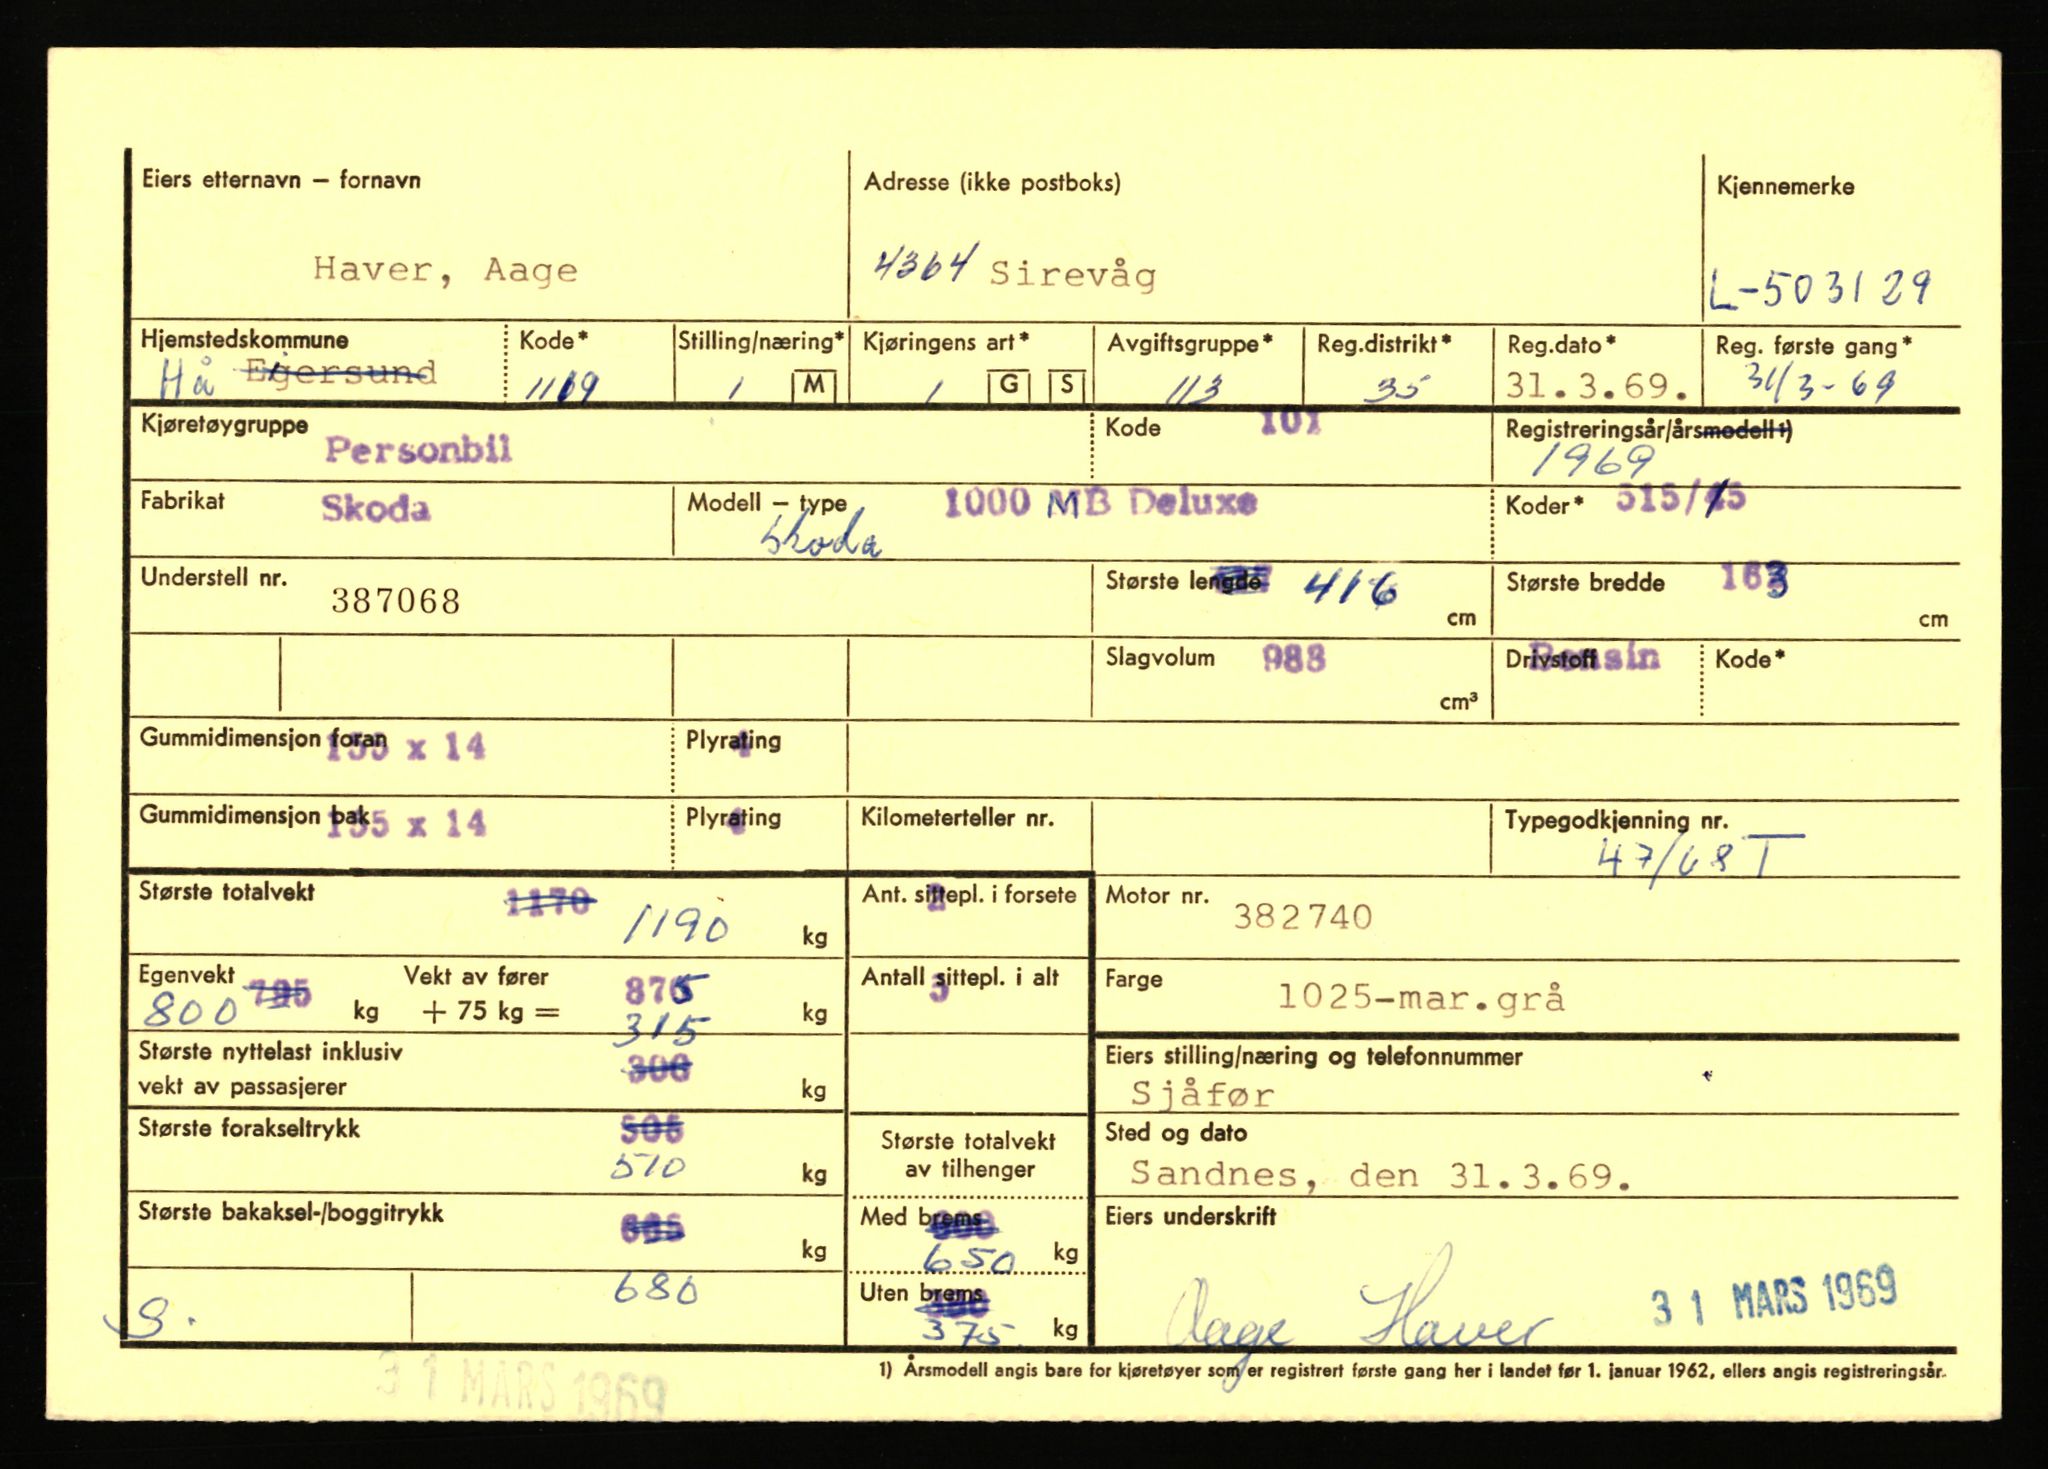 Eiers etternavn – fornavn
Adresse (ikke postboks)
Kjennemerke
Haver, Aage
4364 Sirevåg
L-503129
Hjemstedskommune
Kode*
Stilling/næring*
Kjøringens art*
Avgiftsgruppe*
Reg.distrikt*
Reg.dato*
Reg. første gang*
Hå Egersund
1119
1 M
1 G S
113
35
31.3.69.
31/3-69
Kjøretøygruppe
Personbil
Kode 101
Registreringsår/årsmodell 1)
1969
Fabrikat Skoda
Modell – type 1000 MB Deluxe
Skoda
Koder* 515/15
Understell nr.
387068
Største lengde 416 cm
Største bredde 163 cm
Slagvolum 988 cm³
Drivstoff Bensin
Kode*
Gummidimensjon foran 155 x 14
Plyrating 4
Gummidimensjon bak 155 x 14
Plyrating 4
Kilometerteller nr.
Typegodkjenning nr.
47/68 T
Største totalvekt 1170
1190 kg
Ant. sittepl. i forsete 2
Motor nr. 382740
Egenvekt 795
800 kg
Vekt av fører
+ 75 kg = 875 kg
Antall sittepl. i alt
Farge 1025-mar.grå
315
Største nyttelast inklusiv
vekt av passasjerer 300 kg
Eiers stilling/næring og telefonnummer
Sjåfør
Største forakseltrykk 505
510 kg
Største totalvekt
av tilhenger
Sted og dato
Sandnes, den 31.3.69.
Største bakaksel-/boggitrykk 665 kg
680
Med brems
650 kg
Uten brems
375 kg
Eiers underskrift
Aage Haver
31 MARS 1969
S.
1) Årsmodell angis bare for kjøretøyer som er registrert første gang her i landet før 1. januar 1962, ellers angis registreringsår.
31 MARS 1969